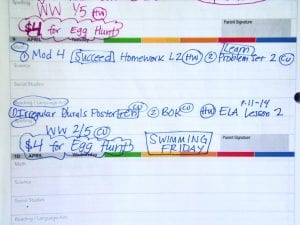 WW 1/5 HW
$4 for Egg Hunt
Parent Signature
9 APRIL Tuesday
Math
① Mod 4 Succeed Homework L2 HW ② Learn Problem Set 2 CW
Science
Social Studies
Reading / Language Arts
① Irregular Plurals Poster CW ② BOK CW HW ELA Lesson 2 p.11-14
WW 2/5 CW
$4 for Egg Hunt
SWIMMING
FRIDAY
Parent Signature
10 APRIL Wednesday
Math
Science
Social Studies
Reading / Language Arts